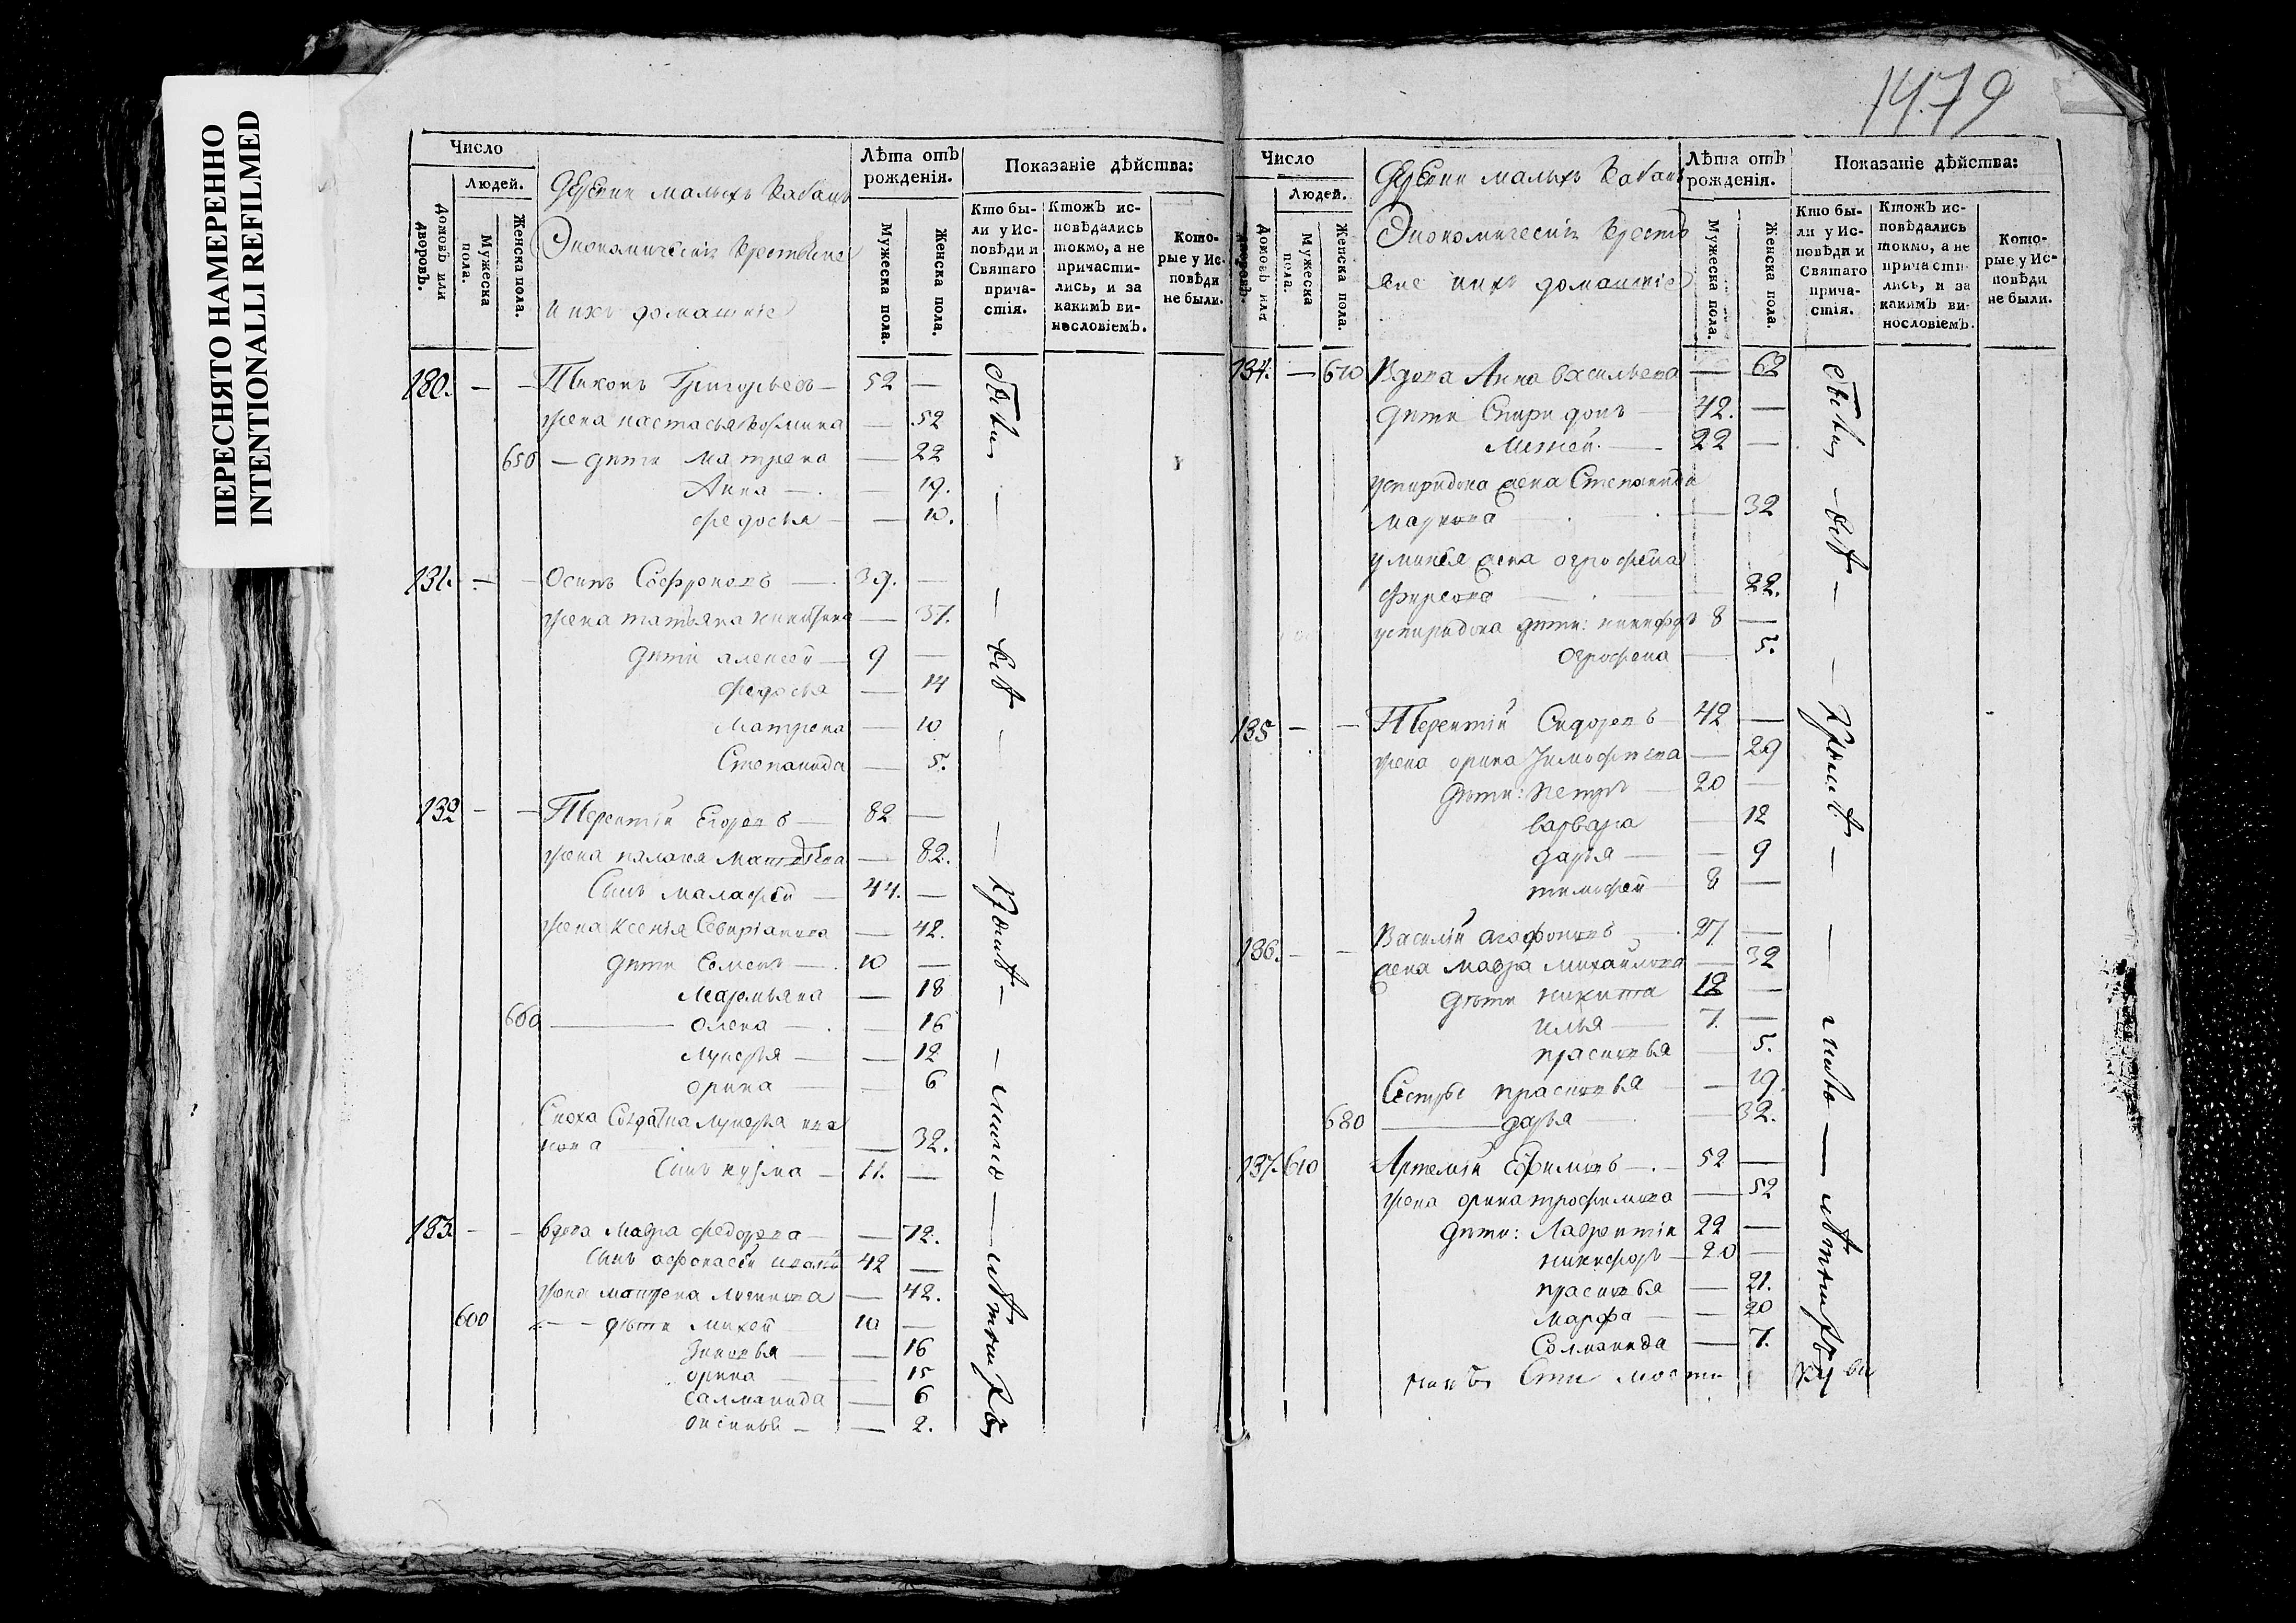 ПЕРЕСНЯТО НАМЕРЕННО
INTENTIONALLI REFILMED
1479
Число
Людей.
Домовъ или дворовъ.
Мужеска пола.
Женска пола.
Деревни малыхъ Кабанъ
Экономическiи Крестьяне
и ихъ домашнiе
Лѣта отъ рожденiя.
Мужеска пола.
Женска пола.
Показанiе дѣйства:
Кто бы-
ли у Ис-
повѣди и
Святаго
прича-
стiя.
Ктожъ ис-
повѣдались
токмо, а не
причасти-
лись, и за
какимъ ви-
нословiемъ.
Кото-
рые у Ис-
повѣди
не были.
130. — — Тихонъ Григорьевъ — 52 —
жена настасья Козмина — 52
650 — дѣти Матрена — 22
Анна — 19.
федосья — 10.
131. — — Осипъ Софроновъ — 39. —
жена татьяна никитина — 37.
дѣти алексей — 9 —
федосья — 14
Матрена — 10
Степанида — 5.
132 — — Терентiй Егоровъ — 82 —
жена палагея Матвѣева — 82.
Сынъ малафей — 44. —
жена Ксенiя Севирiанова — 42.
дѣти Семенъ — 10 —
Маремьяна — 18
660 — олена — 16
лукерья — 12
орина — 6
Сноха Солдатка лукерья ива
нова — 32.
Сынъ кузма — 11. —
133. — — вдова Мавра федорова — 72.
Сынъ афонасей ивановъ 42 —
жена матрена логинова — 42.
600 — дѣти михей 10 —
Зиновья — 16
орина — 15
Саламанида — 6
оксинья — 2.
Число
Людей.
Домовъ или дворовъ.
Мужеска пола.
Женска пола.
Деревни малыхъ Кабанъ
Экономическiи Кресть
яне ихъ домашнiе
Лѣта отъ рожденiя.
Мужеска пола.
Женска пола.
Показанiе дѣйства:
Кто бы-
ли у Ис-
повѣди и
Святаго
прича-
стiя.
Ктожъ ис-
повѣдались
токмо, а не
причасти-
лись, и за
какимъ ви-
нословiемъ.
Кото-
рые у Ис-
повѣди
не были.
134. — 670 Вдова Анна васильева — 62
дѣти Спиридонъ — 42. —
Миней — 22 —
успиридона жена Степанида
маркова — 32
у минея жена огрофена
фирсова — 22.
успиридона дѣти: никифоръ 8 —
огрофена — 5.
135 — — Терентiй Сидоровъ — 42 —
жена орина Тимофеева — 29
дѣти: петръ — 20 —
варвара — 12
дарья — 9
тимофей — 8 —
136. — — Василiй агафоновъ — 27 —
жена мавра михайлова — 32
дѣти никита 12 —
илья — 7. —
прасковья — 5.
Сестры прасковья — 19.
680 — дарья — 32.
137. 610 Артемiй Ефимовъ — 52 —
жена орина трофимова — 52
дѣти: Лаврентiи 22 —
никифоръ — 20 —
прасковья — 21.
марфа — 20
Соломанида — 7.